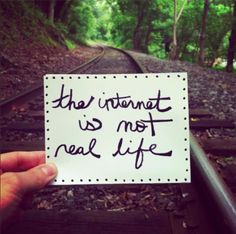 the internet
is not
real life